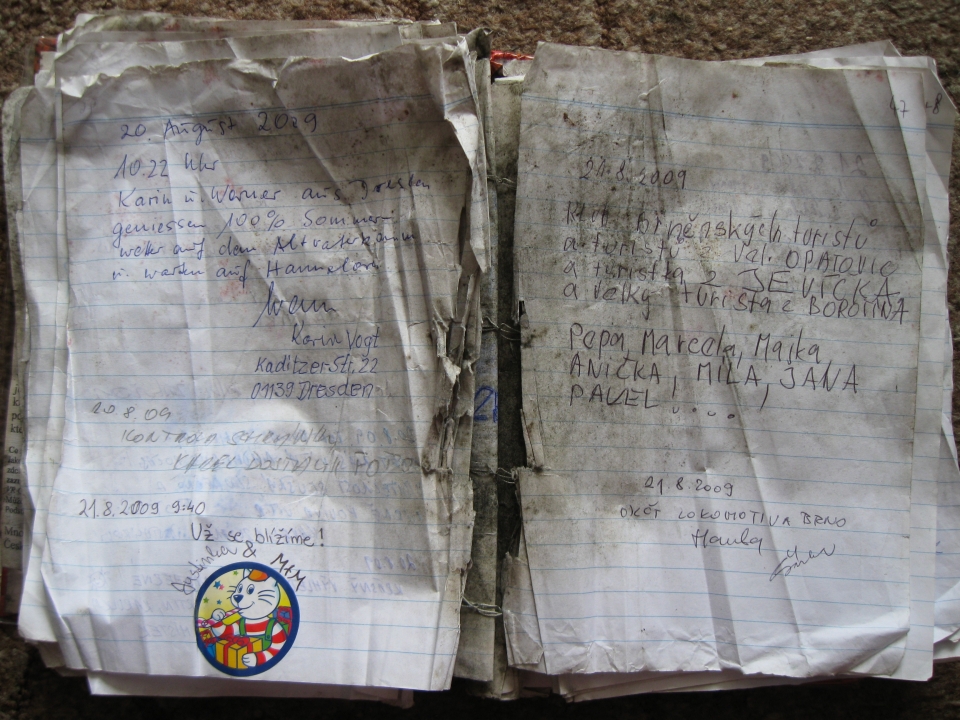 20. August 2009
10.22 Uhr
Karin u. Werner aus Dresden
geniessen 100% Sommer-
wetter auf dem Altvaterkamm
u. warten auf Hannelore
Karin Vogt
Kaditzer Str. 22
01139 Dresden
20.8.09
KONTROLA SCHRÁNKY
KAREL DOSTÁL
21.8.2009 9:40
Už se blížíme!
& M+M
47
21.8.2009
Klub turistů
a turistů Vel. OPATOVIC
a turistka z JEVÍČKA
a velký turista z BOROTÍNA
Pepa, Marcela, Majka,
ANIČKA, MILA, JANA,
PAVEL....
21.8.2009
OKČT LOKOMOTIVA BRNO